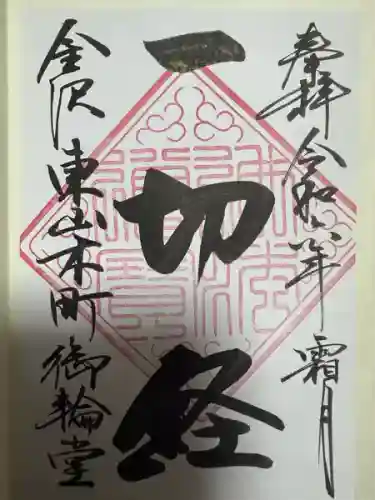 奉拝 令和六年 霜月
一切経
金沢 東山木町 御輪堂